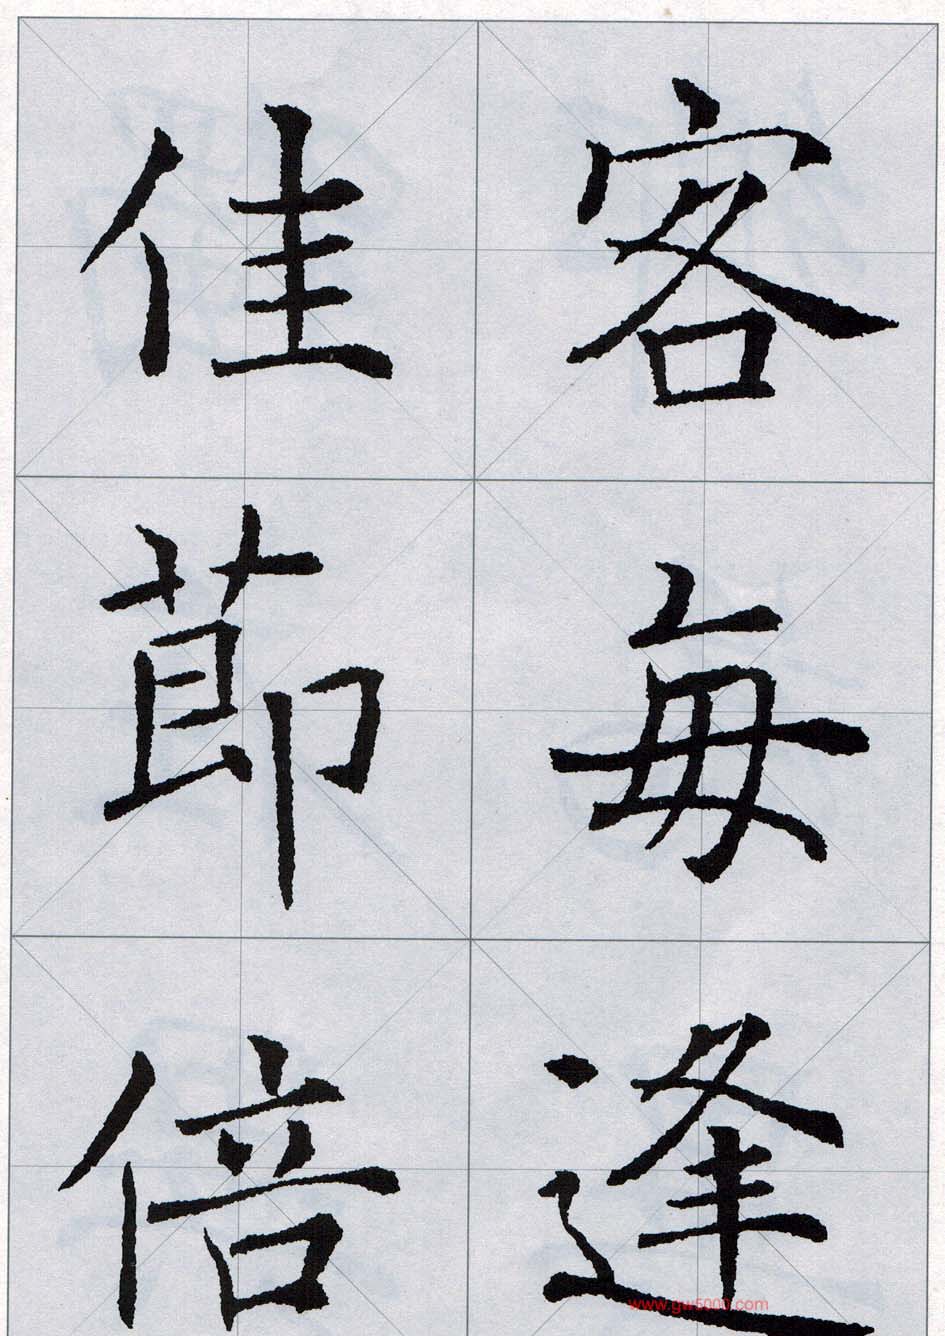 客每逢
佳莭倍
www.gw5000.com